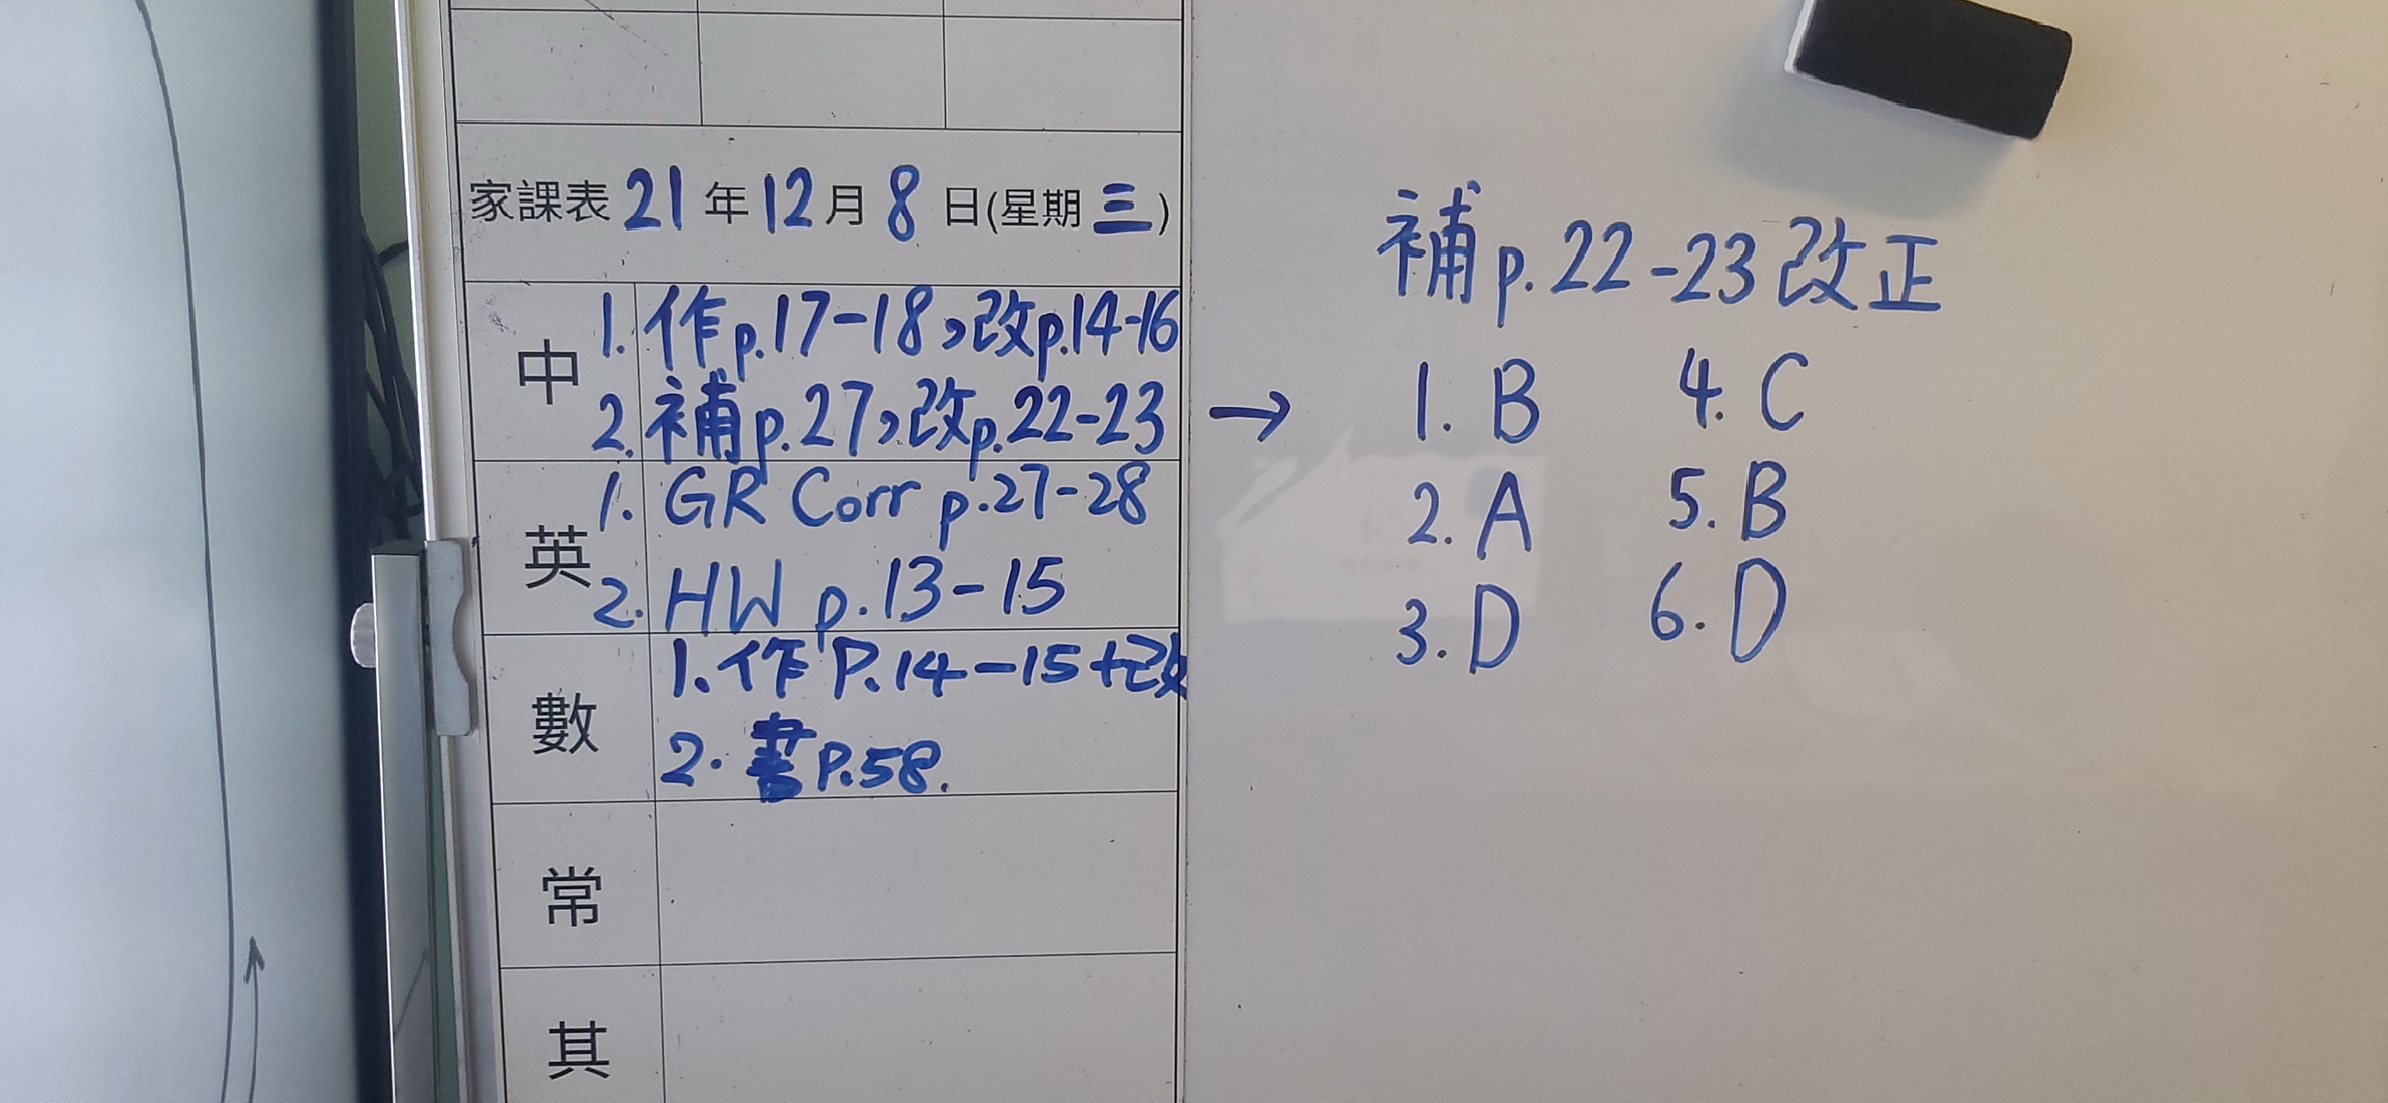 家課表 21 年 12 月 8 日(星期 三)
中
1. 作p.17-18,改p.14-16
2. 補p.27,改p.22-23 →
英
1. GR Corr p.27-28
2. HW p.13-15
數
1. 作 P.14-15+改
2. 書 P.58.
常
其
補p.22-23改正
1. B 4. C
2. A 5. B
3. D 6. D